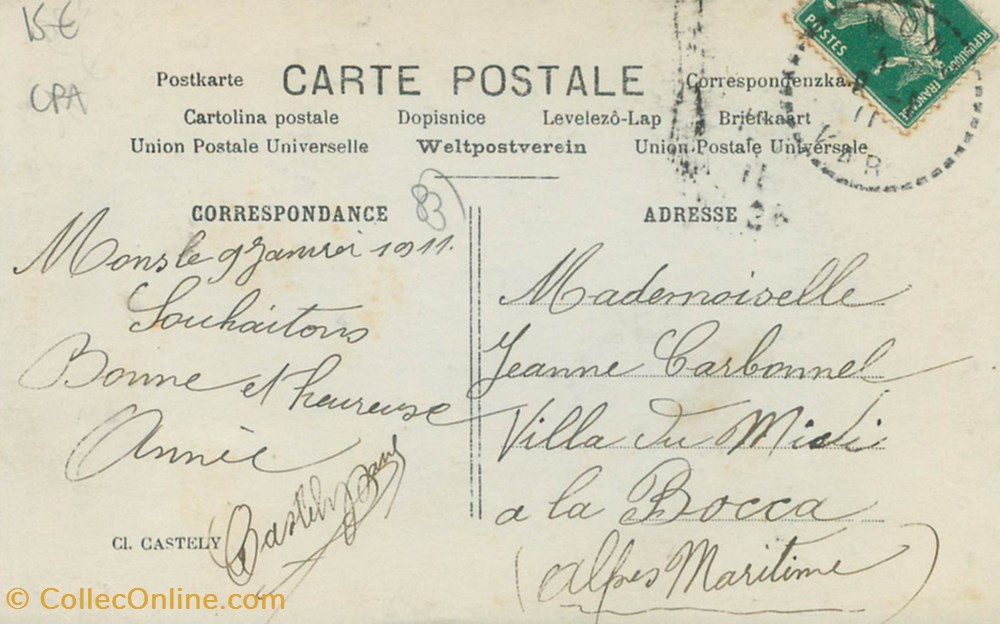 15 €
CPA
POSTES
REPUBLIQUE FRANCAISE
MON
11
VAR
Postkarte CARTE POSTALE Correspondenzka
Cartolina postale Dopisnice Levelezõ-Lap Briefkaart
Union Postale Universelle Weltpostverein Union Postale Universale
83
CORRESPONDANCE
Mons le 9 Janvier 1911.
Souhaitons
Bonne et heureuse
Année
Castely
Cl. CASTELY
ADRESSE
Mademoiselle
Jeanne Carbonnel
Villa du Midi
a la Bocca
(Alpes Maritime)
© CollecOnline.com